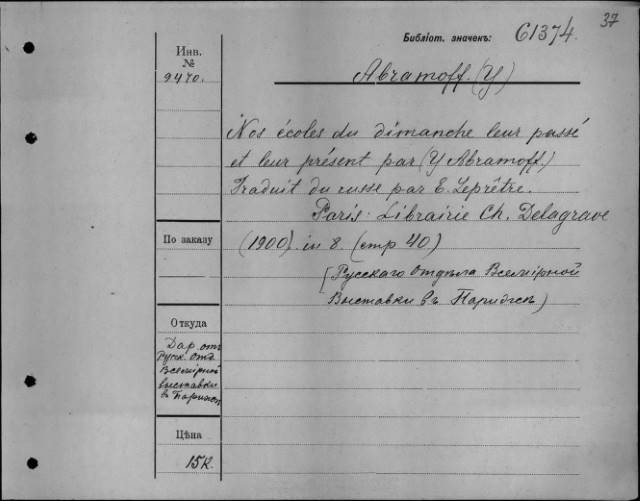 37
Библіот. значекъ: 61374.
Инв.
№
9470.
Abramoff. (Y)
Nos écoles du dimanche leur passé
et leur présent par (Y Abramoff.)
Traduit du russe par E. Leprêtre.
Paris. Librairie Ch. Delagrave
По заказу
(1900). in 8. (стр 40)
(Русскаго отдѣла Всемірной
Выставки въ Парижѣ)
Откуда
Дар. отъ
Русск. отд.
Всемірной
выставки
въ Парижѣ
Цѣна
15к.